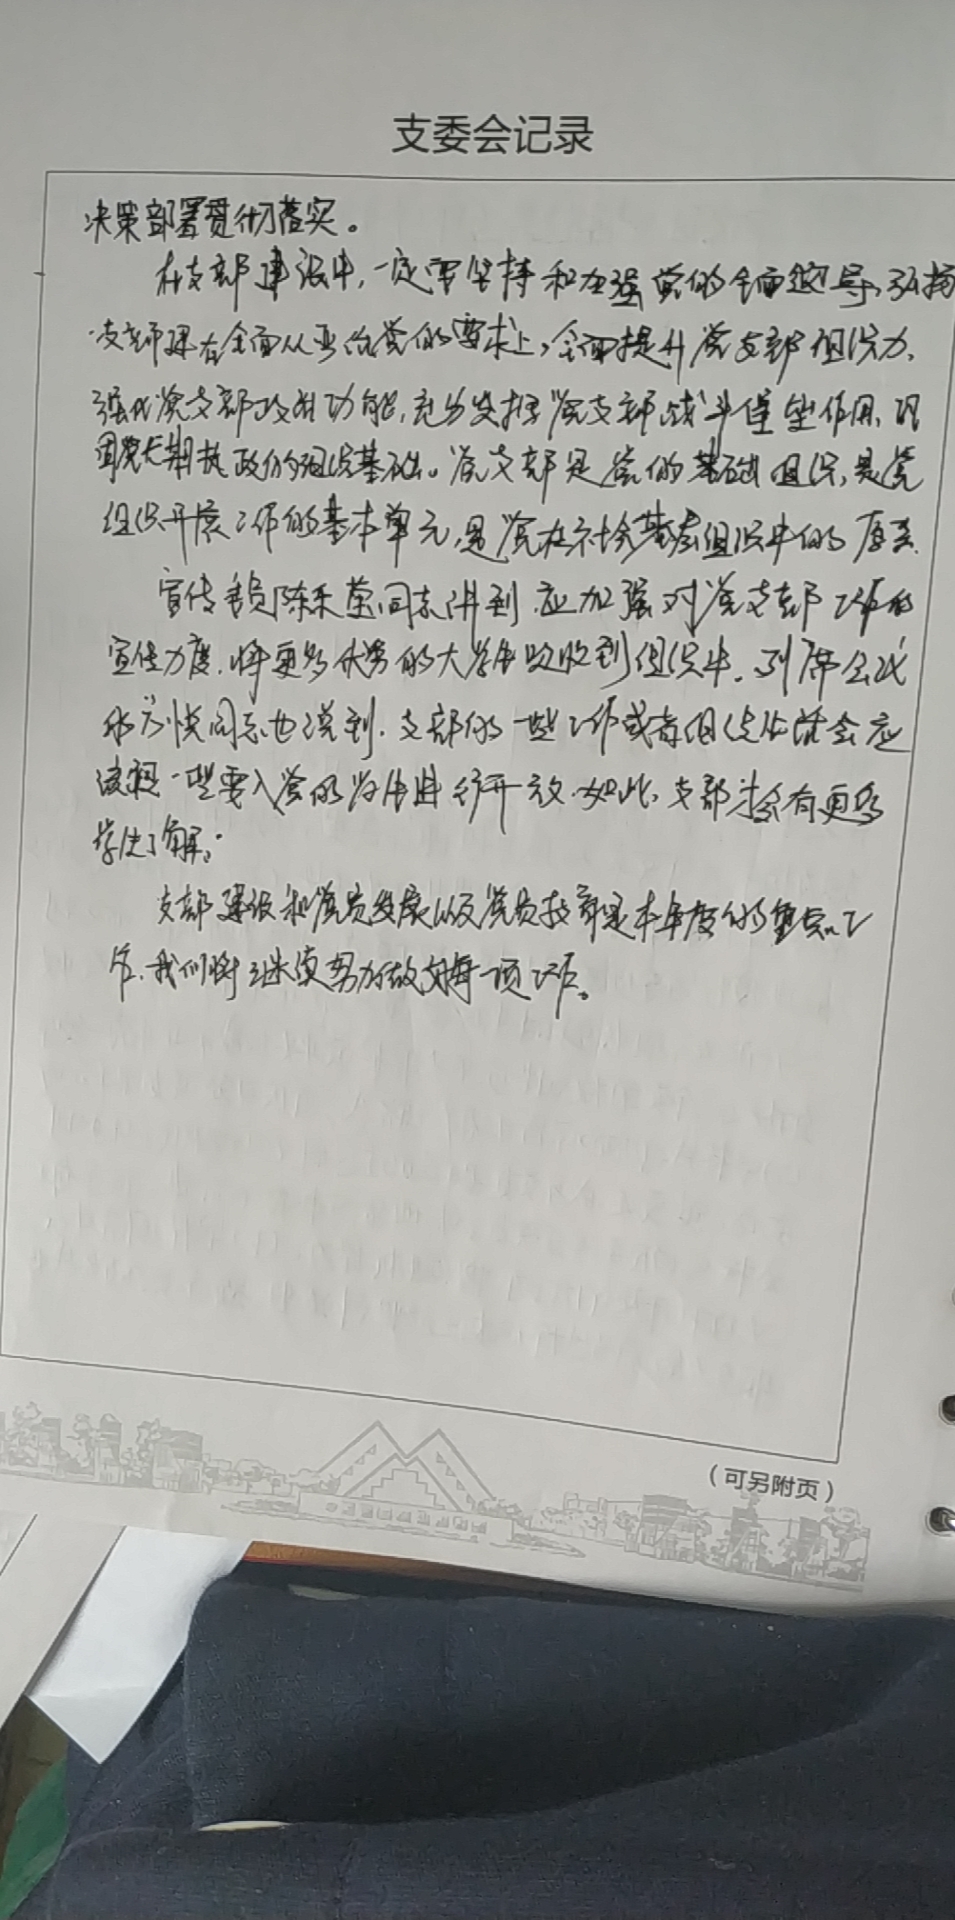 支委会记录
决策部署贯彻落实。
在支部建设中，一定要坚持和加强党的全面领导、弘扬
支部建在全面从严治党的要求上，全面提升党支部组织力，
强化党支部政治功能，充分发挥党支部战斗堡垒作用，巩
固党长期执政的组织基础。党支部是党的基础组织，是党
组织开展工作的基本单元，是党在社会基层组织中的
宣传委员陈禾莹同志讲到 应加强对党支部工作的
宣传力度，将更多优秀的大学生吸收到组织中。列席会议
的 同志也说到，支部的一些工作或者组织生活会应
该和一些要入党的学生进行开放，如此，支部才会有更多
了解。
支部建设和党员发展以及党员教育是本年度的重点工
作，我们将继续努力做好每一项工作。
（可另附页）